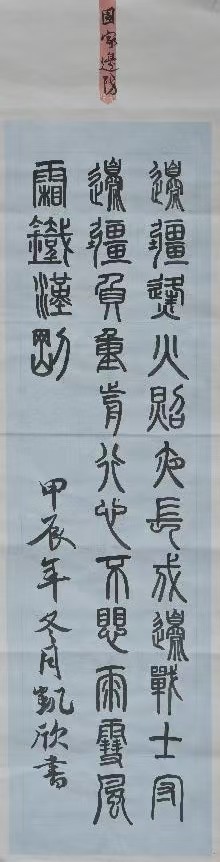 國家邊防
邊疆烽火照夜長戍邊戰士守
邊疆負重前行心不愳雨雪風
霜鐵漢剛
甲辰年冬月凱欣書